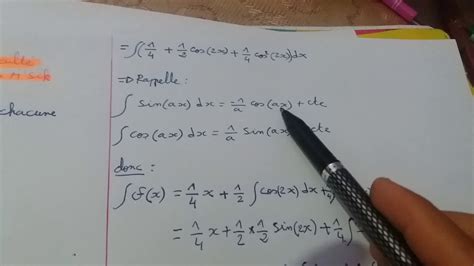 = ∫(1/4 + 1/2 cos(2x) + 1/4 cos²(2x))dx
=> Rappelle :
chacune
∫ sin(ax) dx = -1/a cos(ax) + cte
∫ cos(ax) dx = 1/a sin(ax) cte
donc :
∫ f(x) = 1/4 x + 1/2 ∫ cos(2x) dx +
= 1/4 x + 1/2 × 1/2 sin(2x) + 1/4 ∫